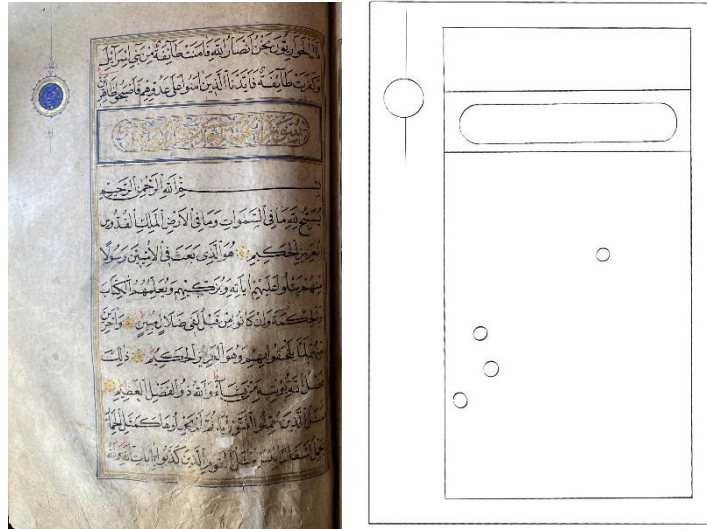 قال الحواريون نحن انصار الله فامنت طائفة من بني اسرائيل
وكفرت طائفة فايدنا الذين امنوا على عدوهم فاصبحوا ظاهرين
سورة
بسم الله الرحمن الرحيم
يسبح لله ما في السموات وما في الارض الملك القدوس
العزيز الحكيم هو الذي بعث في الاميين رسولا
منهم يتلوا عليهم اياته ويزكيهم ويعلمهم الكتاب
والحكمة وان كانوا من قبل لفي ضلال مبين واخرين
منهم لما يلحقوا بهم وهو العزيز الحكيم ذلك
فضل الله يؤتيه من يشاء والله ذو الفضل العظيم
مثل الذين حملوا التورية ثم لم يحملوها كمثل الحمار
يحمل اسفارا بئس مثل القوم الذين كذبوا بايات الله والله